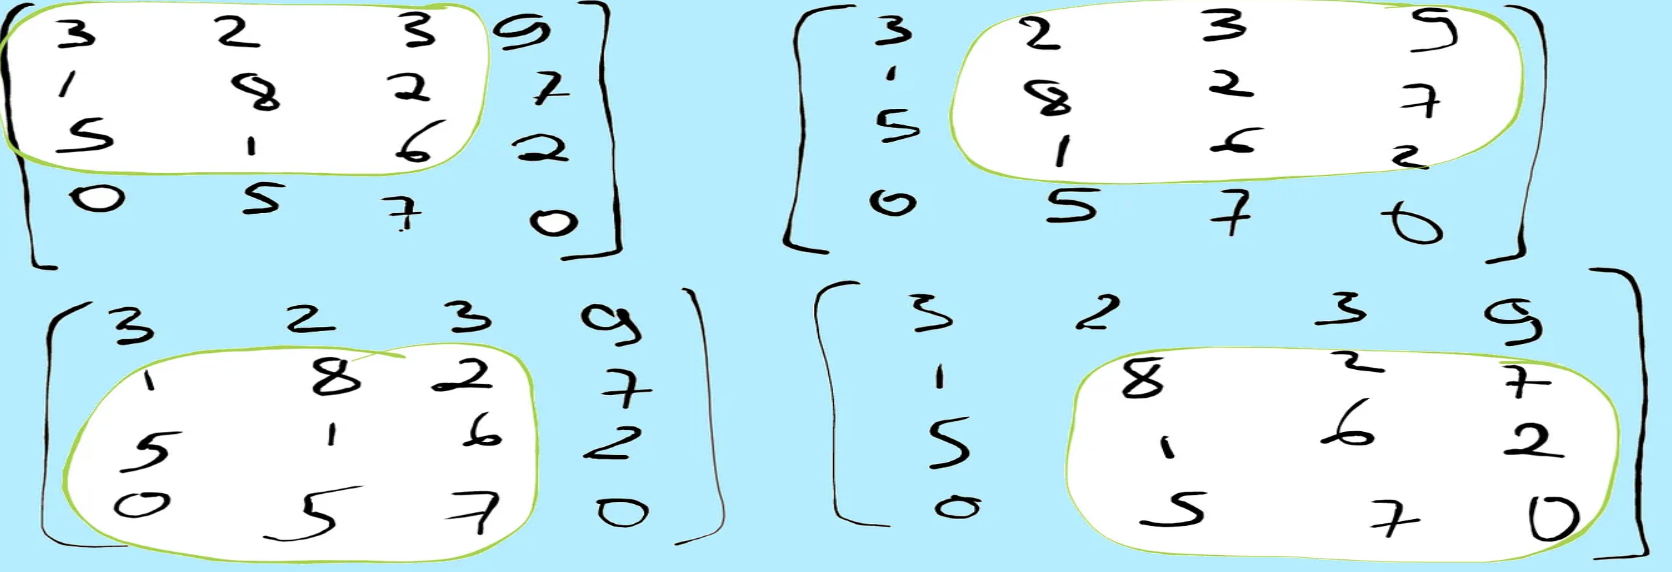 3 2 3 9
1 8 2 7
5 1 6 2
0 5 7 0
3 2 3 9
1 8 2 7
5 1 6 2
0 5 7 0
3 2 3 9
1 8 2 7
5 1 6 2
0 5 7 0
3 2 3 9
1 8 2 7
5 1 6 2
0 5 7 0